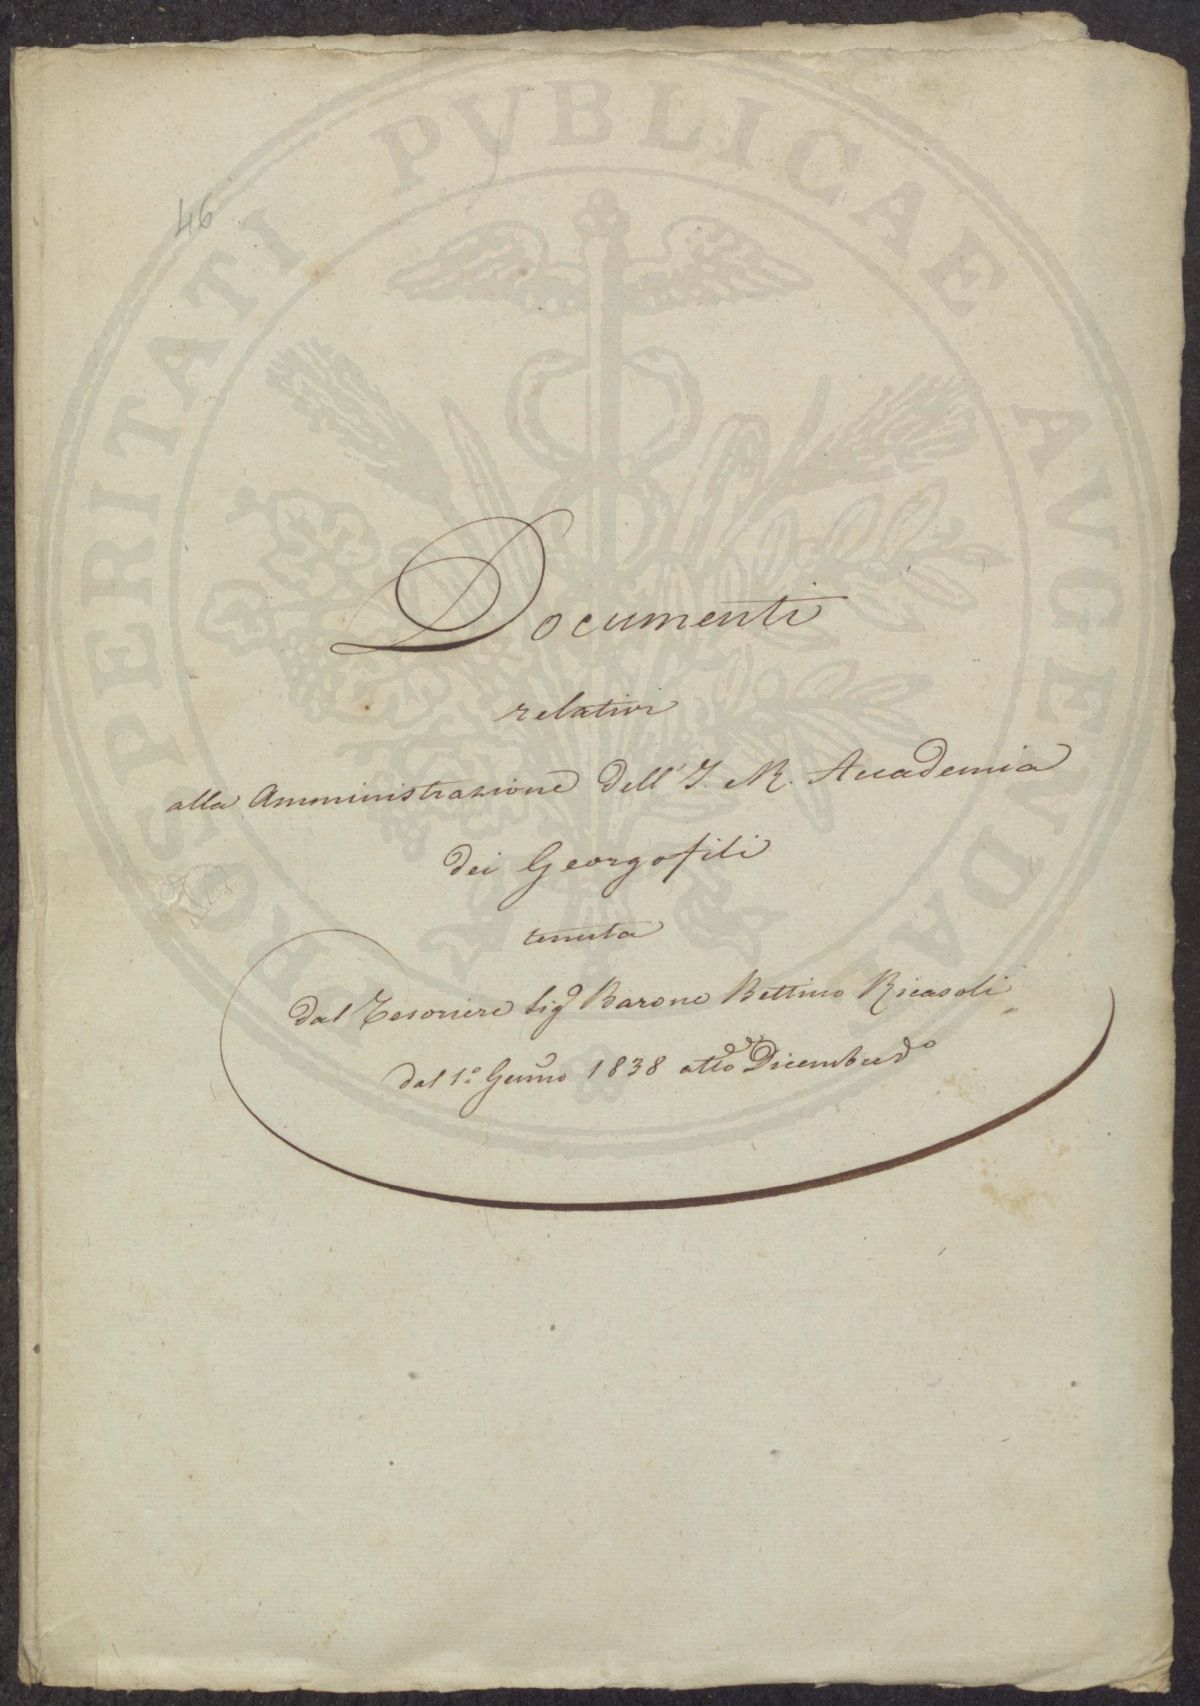 46
PROSPERITATI PVBLICAE AVGENDAE
Documenti
relativi
alla Amministrazione dell' I. R. Accademia
dei Georgofili
tenuta
dal Tesoriere Sig.r Barone Bettino Ricasoli
dal 1.o Genn.o 1838 a tt.o Dicembre d.o